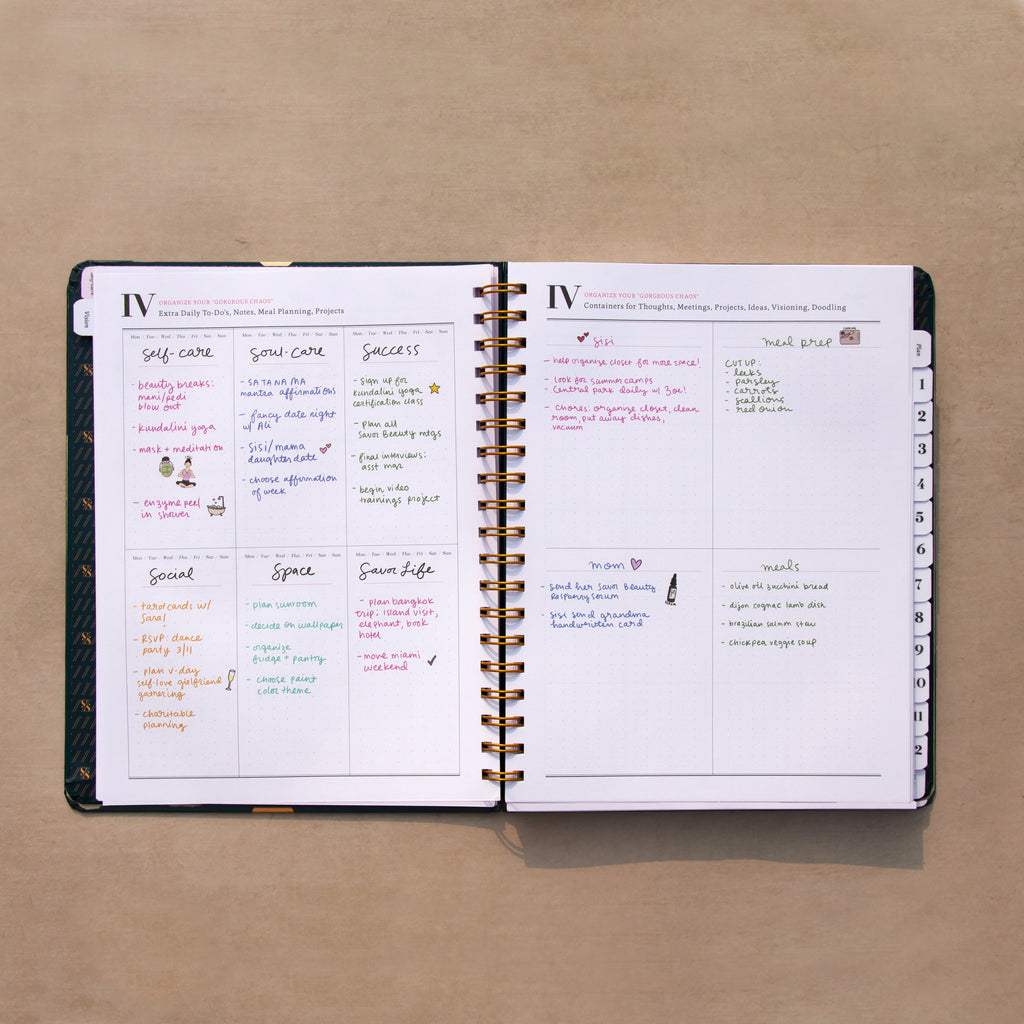 IV
ORGANIZE YOUR "GORGEOUS CHAOS"
Extra Daily To-Do's, Notes, Meal Planning, Projects
Mon / Tue / Wed / Thu / Fri / Sat / Sun
self-care
- beauty breaks:
mani/pedi
blow out
- kundalini yoga
- mask + meditation
- enzyme peel
in shower
Mon / Tue / Wed / Thu / Fri / Sat / Sun
soul-care
- SA TA NA MA
mantra affirmations
- fancy date night
w/ Ali
- Sisi/mama
daughter date
- choose affirmation
of week
Mon / Tue / Wed / Thu / Fri / Sat / Sun
success
- sign up for
kundalini yoga
certification class
- plan all
Savor Beauty mtgs
- final interviews:
asst mgr
- begin video
trainings project
Mon / Tue / Wed / Thu / Fri / Sat / Sun
Social
- tarot cards w/
Sara!
- RSVP: dance
party 3/11
- plan v-day
self-love girlfriend
gathering
- charitable
planning
Mon / Tue / Wed / Thu / Fri / Sat / Sun
Space
- plan sunroom
- decide on wallpaper
- organize
fridge + pantry
- choose paint
color theme
Mon / Tue / Wed / Thu / Fri / Sat / Sun
Savor Life
- plan bangkok
trip: island visit,
elephant, book
hotel
- move miami
weekend
IV
ORGANIZE YOUR "GORGEOUS CHAOS"
Containers for Thoughts, Meetings, Projects, Ideas, Visioning, Doodling
Sisi
- help organize closet for more space!
- look for summer camps
- Central park daily w/ Zoe!
- Chores: organize closet, clean
room, put away dishes,
vacuum
meal prep
CUT UP:
- leeks
- parsley
- carrots
- scallions
- red onion
mom
- send her Savor Beauty
Raspberry serum
- sisi send grandma
handwritten card
meals
- olive oil zucchini bread
- dijon cognac lamb dish
- brazilian salmon stew
- chickpea veggie soup
Vision
Plan
1
2
3
4
5
6
7
8
9
10
11
2